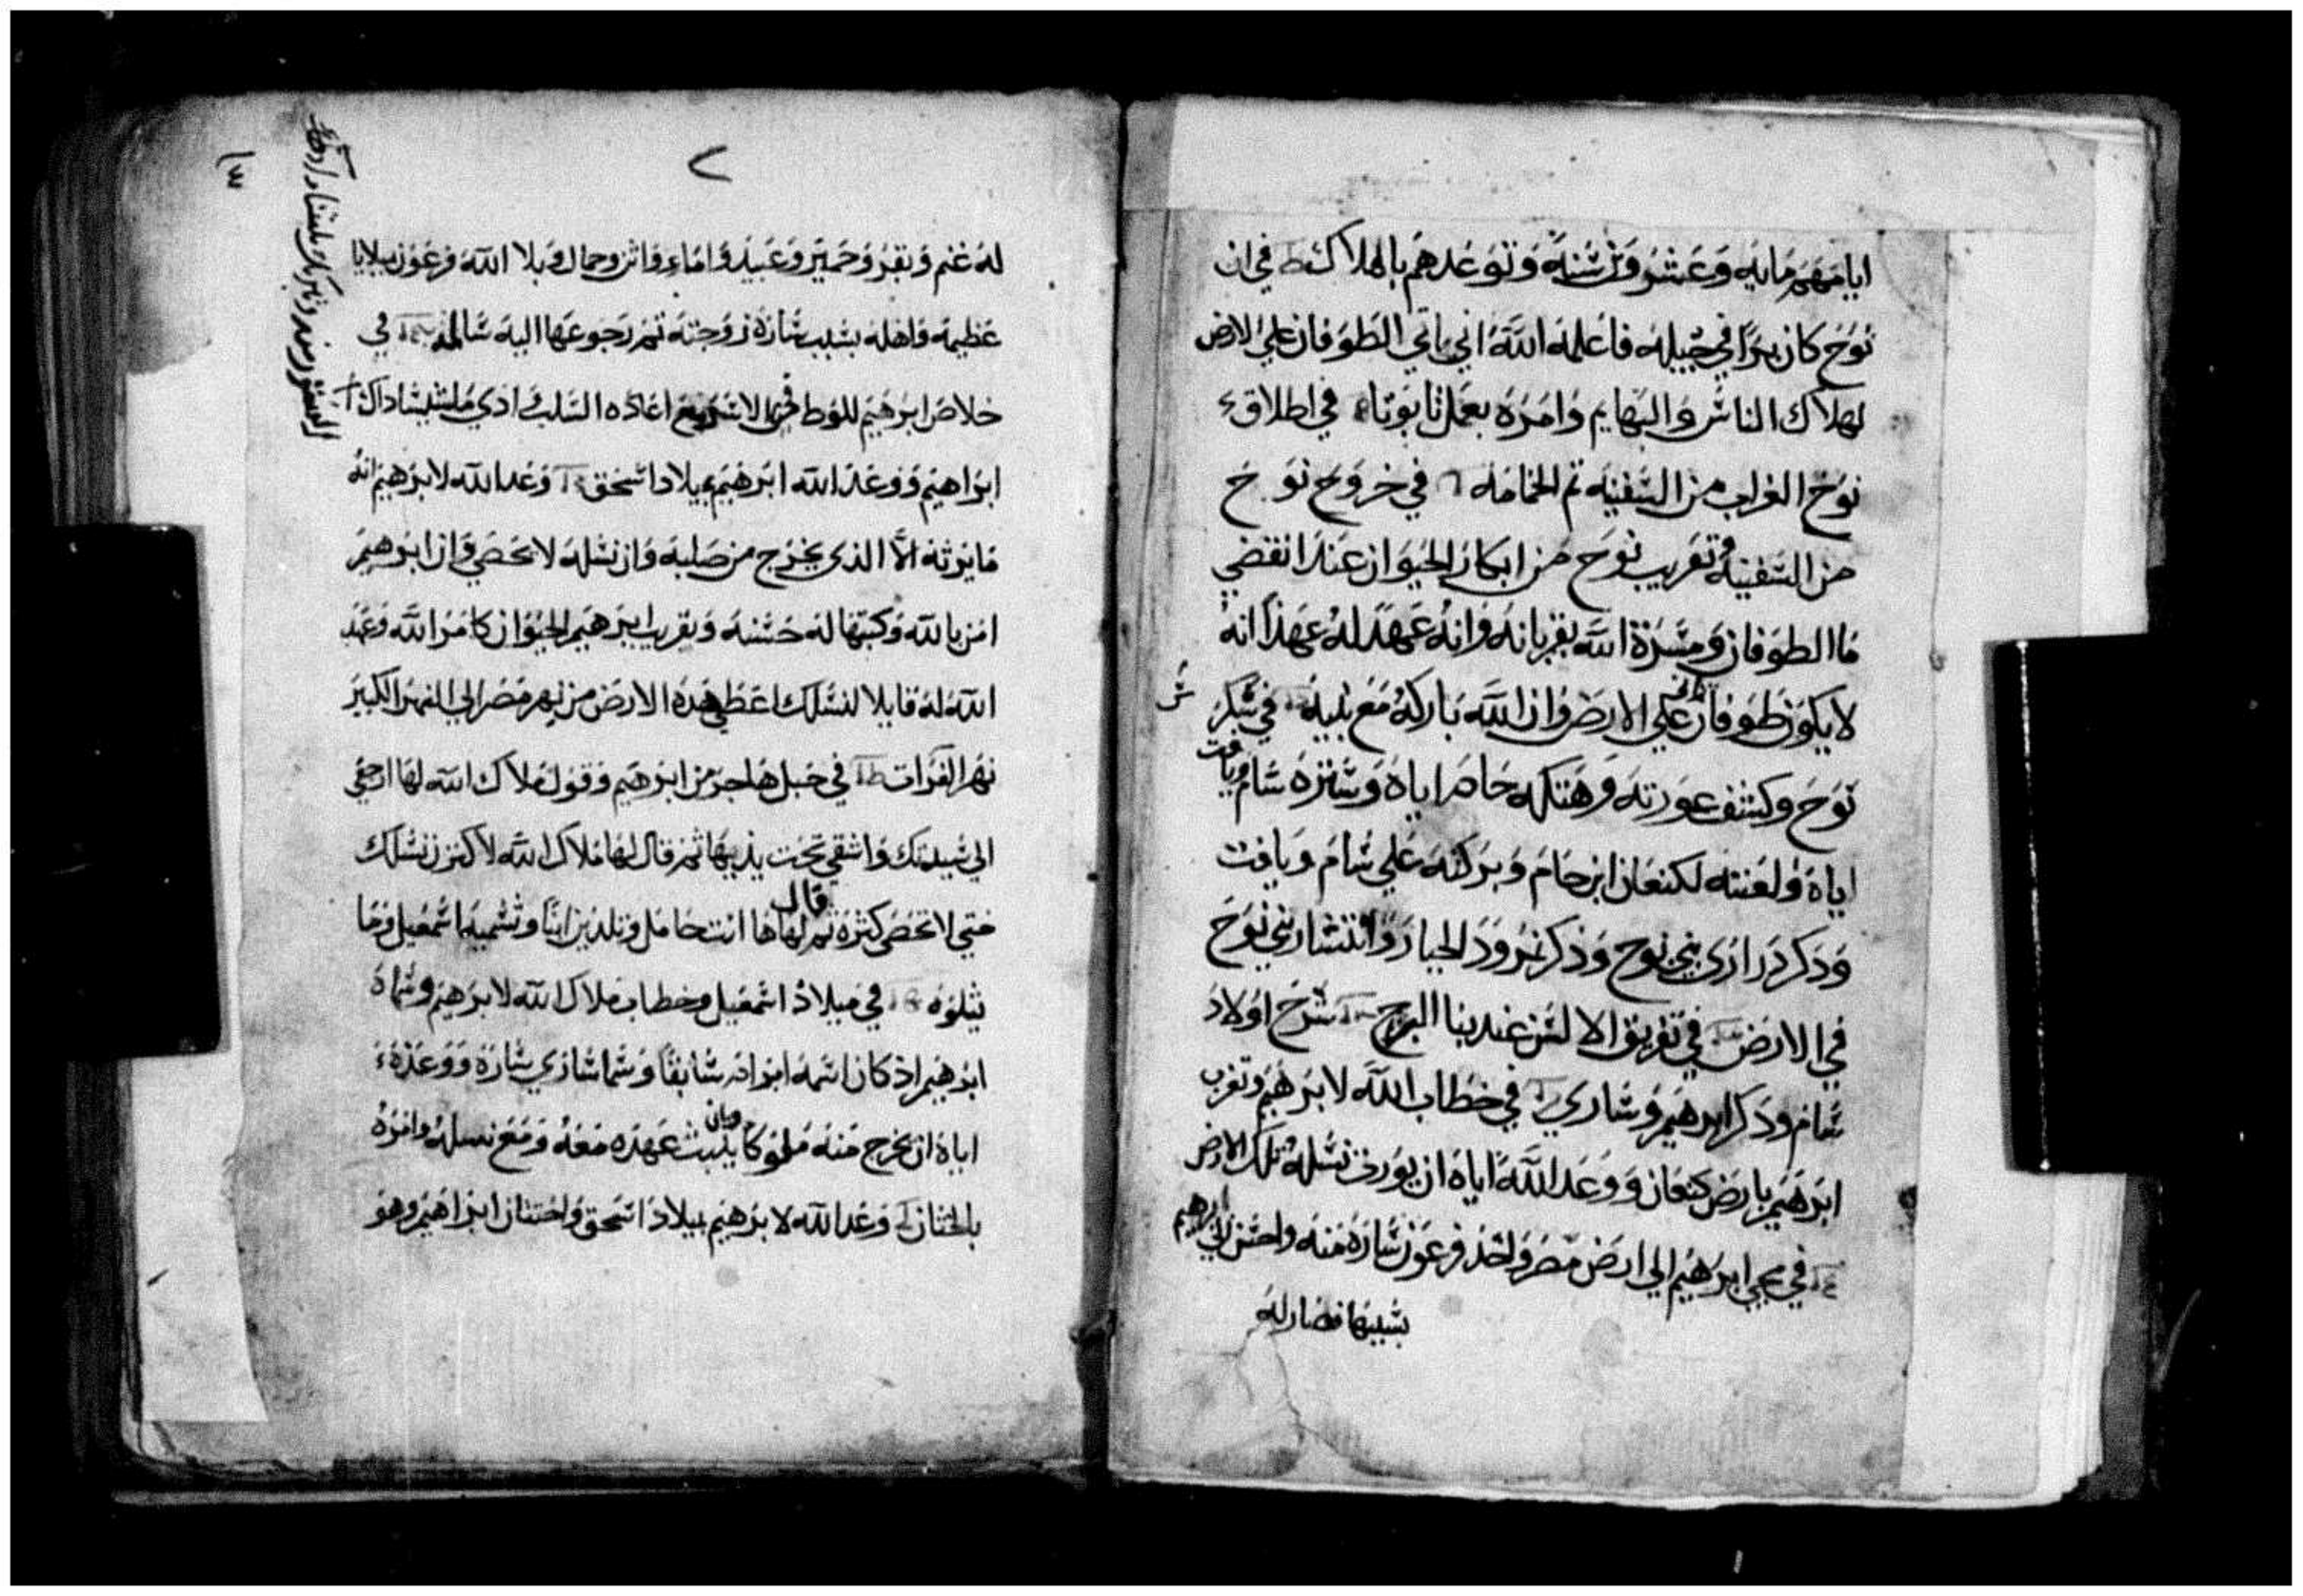 ايامهم مايه وعشروين سنة وتوعدهم بالهلاك في ان
نوح كان برا في جيله فاعلمه الله اني ياتي الطوفان علي الارض
لهلاك الناس والبهايم وامره بعمل تابوتا في اطلاق
نوح الغراب من السفينه ثم الحمامه في خروج نوح
من السفينه وتقريب نوح من ابكار الحيوان عند انقضي
ما الطوفان ومسرة الله بقربانه وانه عهد له عهدا انه
لا يكون طوفان علي الارض وان الله باركه مع بنيه في سكر
نوح وكشف عورته وهتكه حام اياه وستره سام ويافت
اياه ولعنته لكنعان ابن حام وبركته علي سام ويافت
وذكر دراري بني نوح وذكر نمرود الجبار وانتشار بني نوح
في الارض في تفريق الالسن عند بنا البرج شرح اولاد
سام وذكر ابرهيم وساري في خطاب الله لابرهيم وتغرب
ابرهيم بارض كنعان ووعد الله اياه ان يورث نسله تلك الارض
في مجي ابرهيم الي ارض مصر واخذ فرعون ساره منه واحسن الي ابرهيم
بسببها فصار له
٧
له غنم وبقر وحمير وعبيد واماء واتن وجمال وبلا الله فرعون ببلايا
عظيمه واهله بسبب ساره زوجته ثم رجوعها اليه سالمه في
خلاص ابرهيم للوط اعاده السلب
ابراهيم ووعد الله ابرهيم بميلاد اسحق وعد الله لابرهيم انه
ما يرثه الا الذي يخرج من صلبه وان نسله لا يحصي وان ابرهيم
امن بالله وكتبها له حسنه وتقريب ابرهيم الحيوان كامر الله وعهد
الله له قايلا لنسلك اعطي هده الارض من نهر مصر الي النهر الكبير
نهر الفرات في حبل هاجر من ابرهيم وقول ملاك الله لها ارجعي
الي سيدتك واشقي تحت يديها ثم قال لها ملاك الله لاكثرن نسلك
حتي لا تحصي كثرة ثم قال لها ها انت حامل وتلدين ابنا وتسميه اسمعيل وما
يتلوه في ميلاد اسمعيل وخطاب ملاك الله لابرهيم وسماه
ابرهيم اذ كان اسمه ابرام سابقا وسما ساري ساره ووعده
اياه ان يخرج منه ملوكا وبان يثبت عهده معه ومع نسله وامره
بالختان وعد الله لابرهيم بميلاد اسحق واختتان ابراهيم وهو